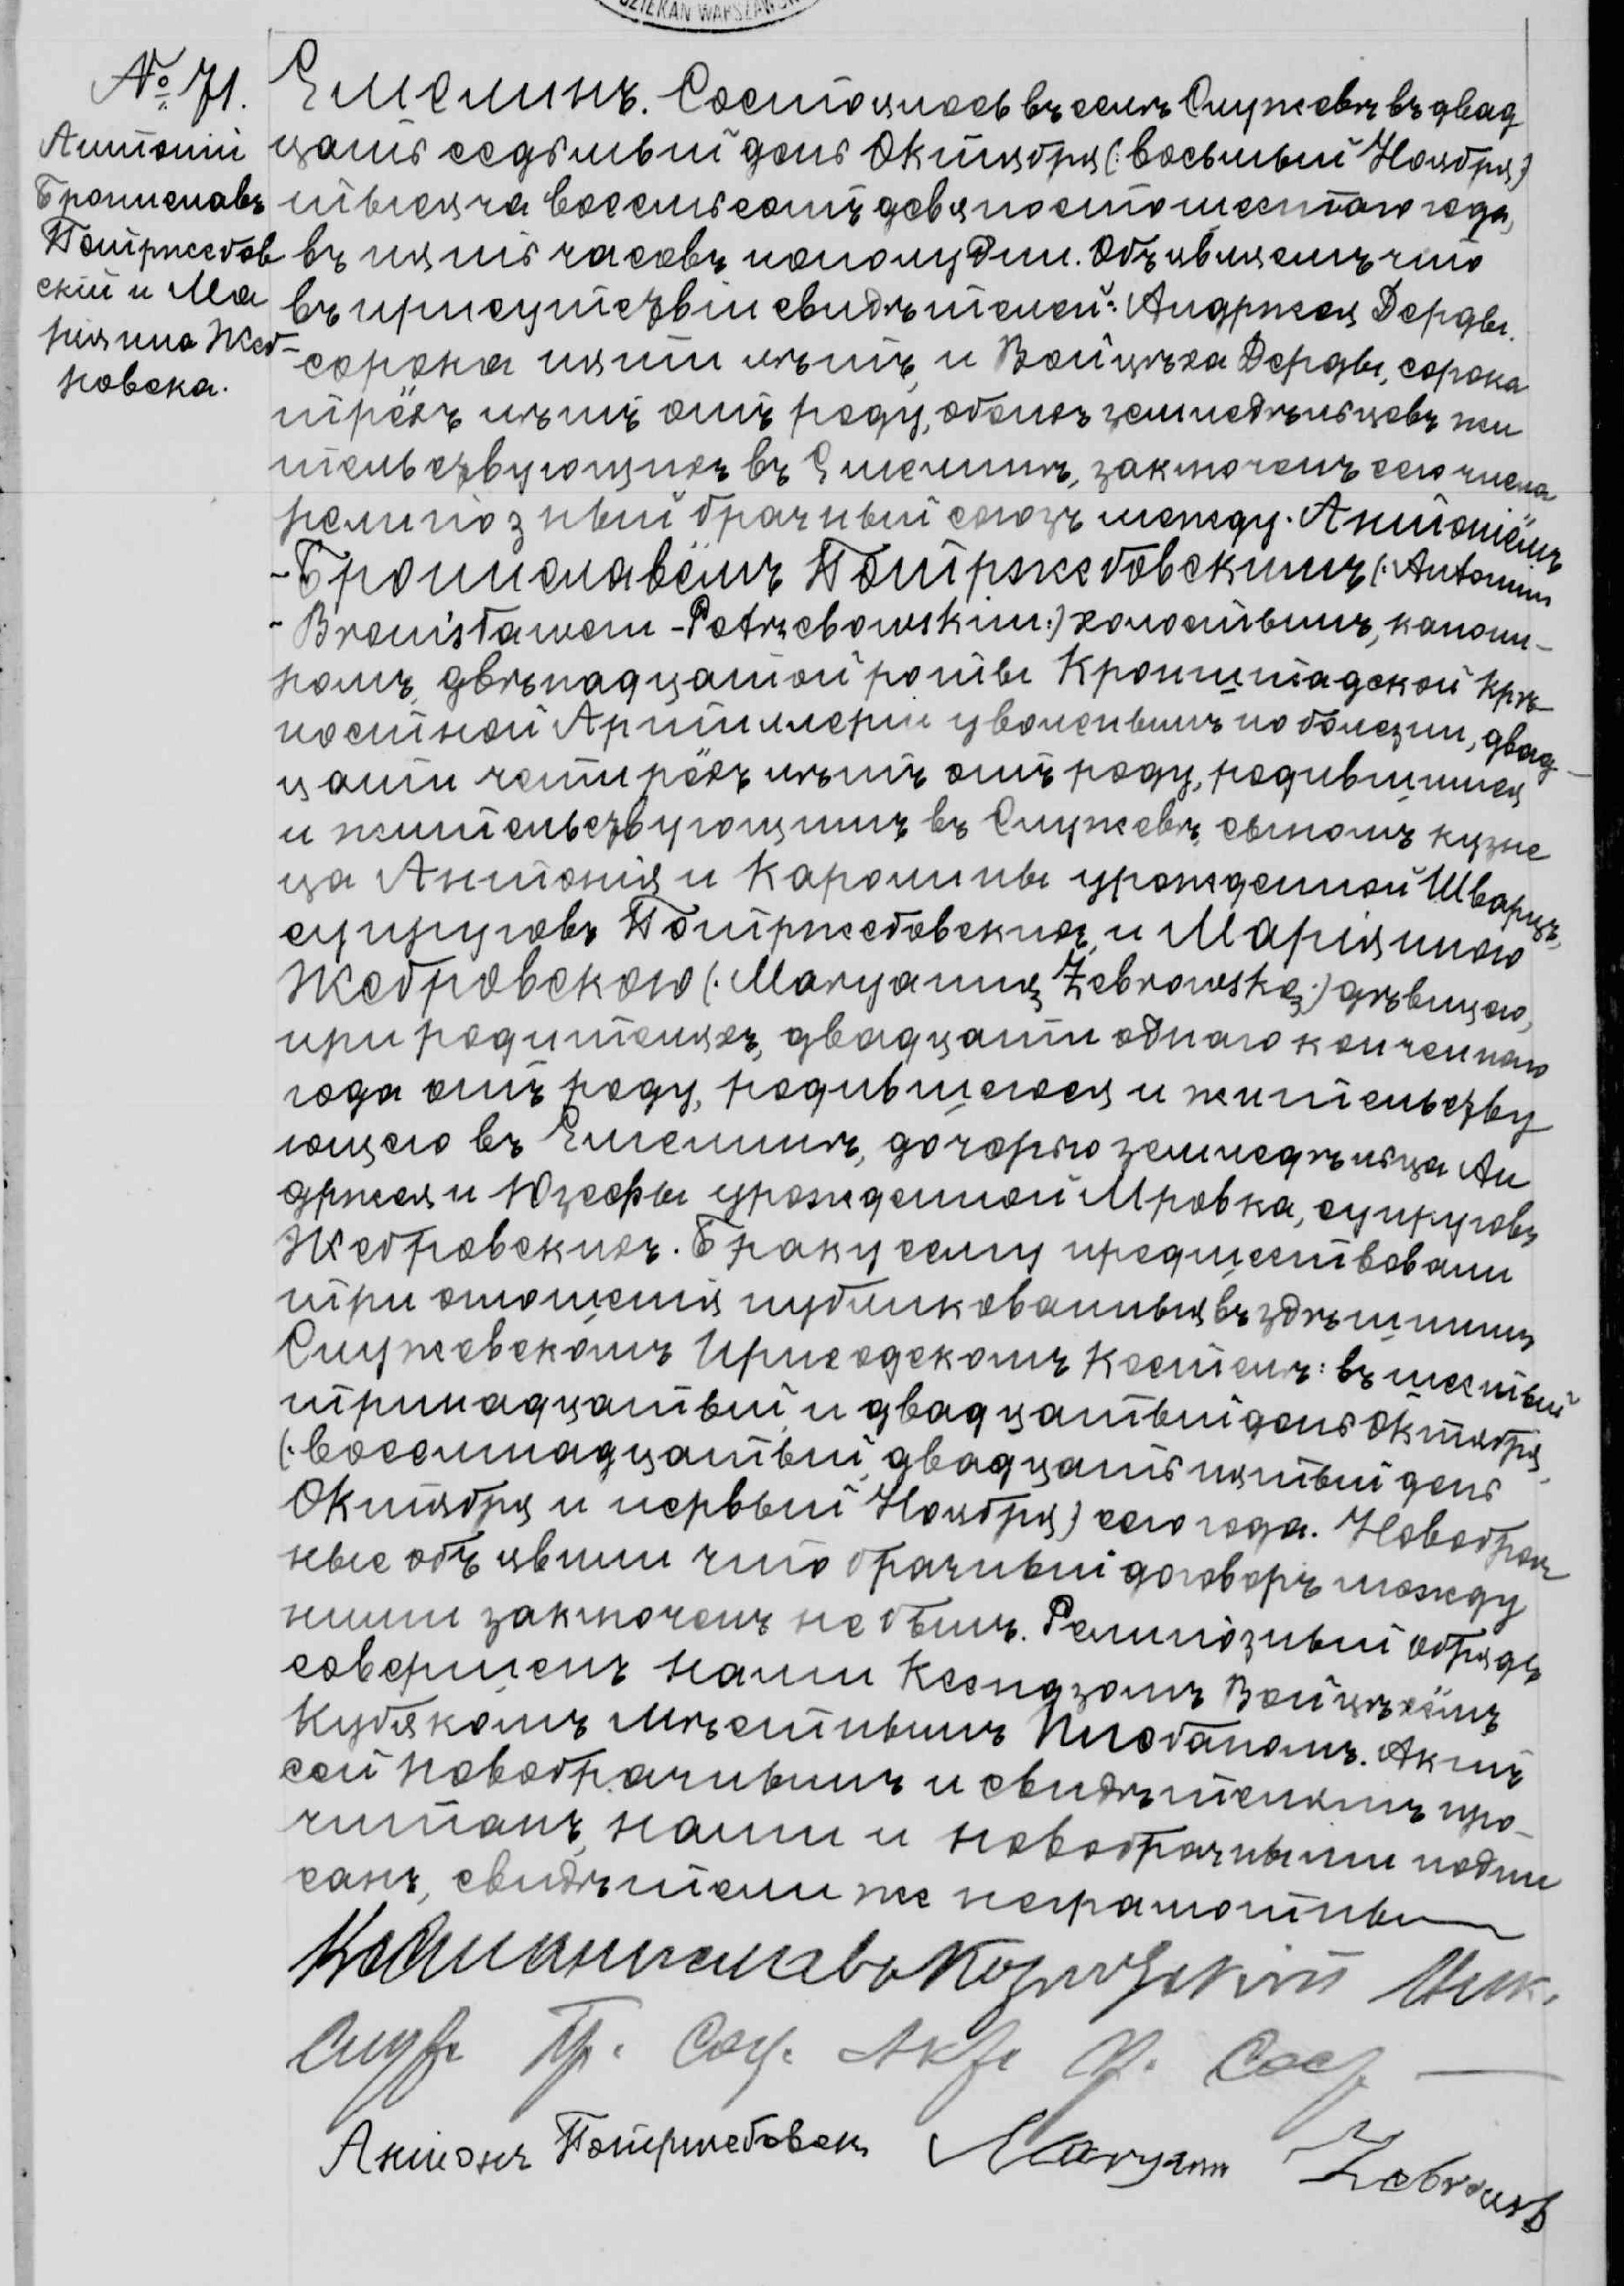 DZIEKAN WARSZAWSK
№ 71.
Антоній
Брониславъ
Потржебов
скій и Ма
ріянна Жеб-
ровска.
Ємелинъ. Состоялось въ селѣ Служевѣ въ двад
цать седьмый день Октября (: восьмый Ноября)
тысяча восемьсотъ девяностошестаго года,
въ пять часовъ пополудни. Объявляемъ что
въ присутствіи свидѣтелей: Андржея Дерды.
сорока пяти лѣтъ, и Войцѣха Дерды, сорока
трёхъ лѣтъ отъ роду, обоихъ земледѣльцевъ жи
тельствующихъ въ Ємелинѣ, заключенъ сего числа
религіозный брачный союзъ между. Антоніёмъ
-Брониславёмъ Потржебовскимъ (: Antonim
- Bronisławem - Potrzebowskim :) холостымъ, канони-
ромъ, двѣнадцатой роты Кронштадской крѣ
постной Артиллеріи уволеннымъ по болезни, двад-
цати четырёхъ лѣтъ отъ роду, родившимся
и жительствующимъ въ Служевѣ, сыномъ кузне
ца Антонія и Каролины урожденной Шварцъ,
супруговъ Потржебовскихъ, и Маріянною
Жебровскою (: Maryanną Żebrowską :) дѣвицею,
при родителяхъ, двадцати одного конченнаго
года отъ роду, родившегося и жительству
ющего въ Ємелинѣ, дочерью земледѣльца Ан
држея и Юзефы урожденной Мровка, супруговъ
Жебровскихъ. Браку сему предшествовали
три оглошенія публикованныя въ здѣшнимъ
Служевскомъ Приходскомъ Костелѣ: въ шестый
тринадцатый, и двадцатый день Октября,
(: восемнадцатый, двадцать пятый день
Октября и первый Ноября) сего года. Новобрач
ные объявили что брачный договоръ между
ними заключенъ не былъ. Религіозный обрядъ
совершенъ нами Ксендзомъ Войцѣхёмъ
Кубякомъ Мѣстнымъ Плебаномъ. Актъ
сей новобрачнымъ и свидѣтелямъ про-
читанъ, нами и новобрачными подпи
санъ, свидѣтели же неграмотны
Антонъ Потржебовски Maryann Żebrowsk